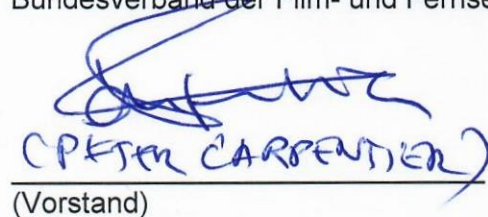 Bundesverband der Film- und Fernse
(PETER CARPENTIER)
(Vorstand)